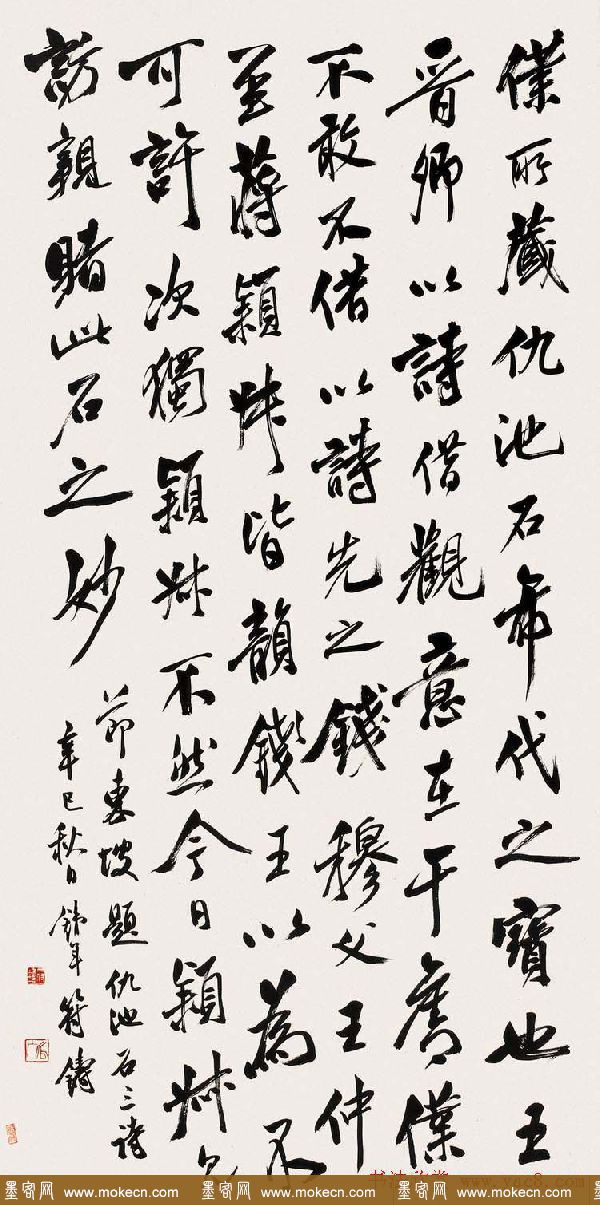 僕所藏仇池石希代之寶也王
晋卿以詩借觀意在于奪僕
不敢不借以詩先之錢穆父王仲
至蔣穎叔皆韻錢王以為不
可許次獨穎叔不然今日穎叔見
訪親睹此石之妙
節東坡題仇池石三詩
辛巳秋日鐵年符鑄
www.yac8.com
墨客网 www.mokecn.com 墨客网 www.mokecn.com 墨客网 www.mokecn.com